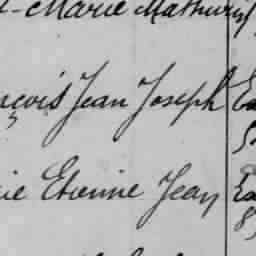 Marie Mathurin
nçois Jean Joseph
ie Etienne Jean